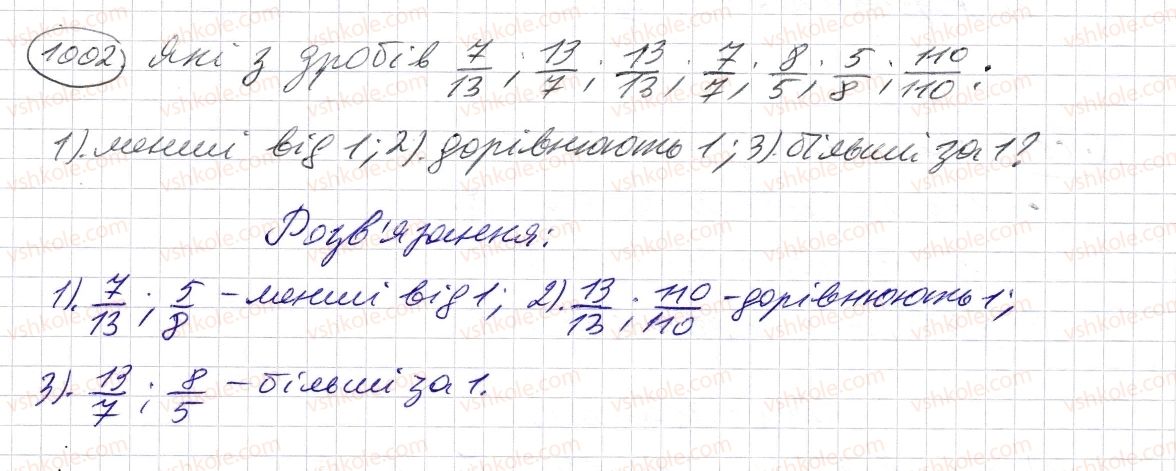 1002 Які з дробів 7/13; 13/7; 13/13; 7/7; 8/5; 5/8; 110/110:
1). менші від 1; 2). дорівнюють 1; 3). більші за 1?
Розв'язання:
1). 7/13; 5/8 – менші від 1; 2). 13/13; 110/110 – дорівнюють 1;
3). 13/7; 8/5 – більші за 1.